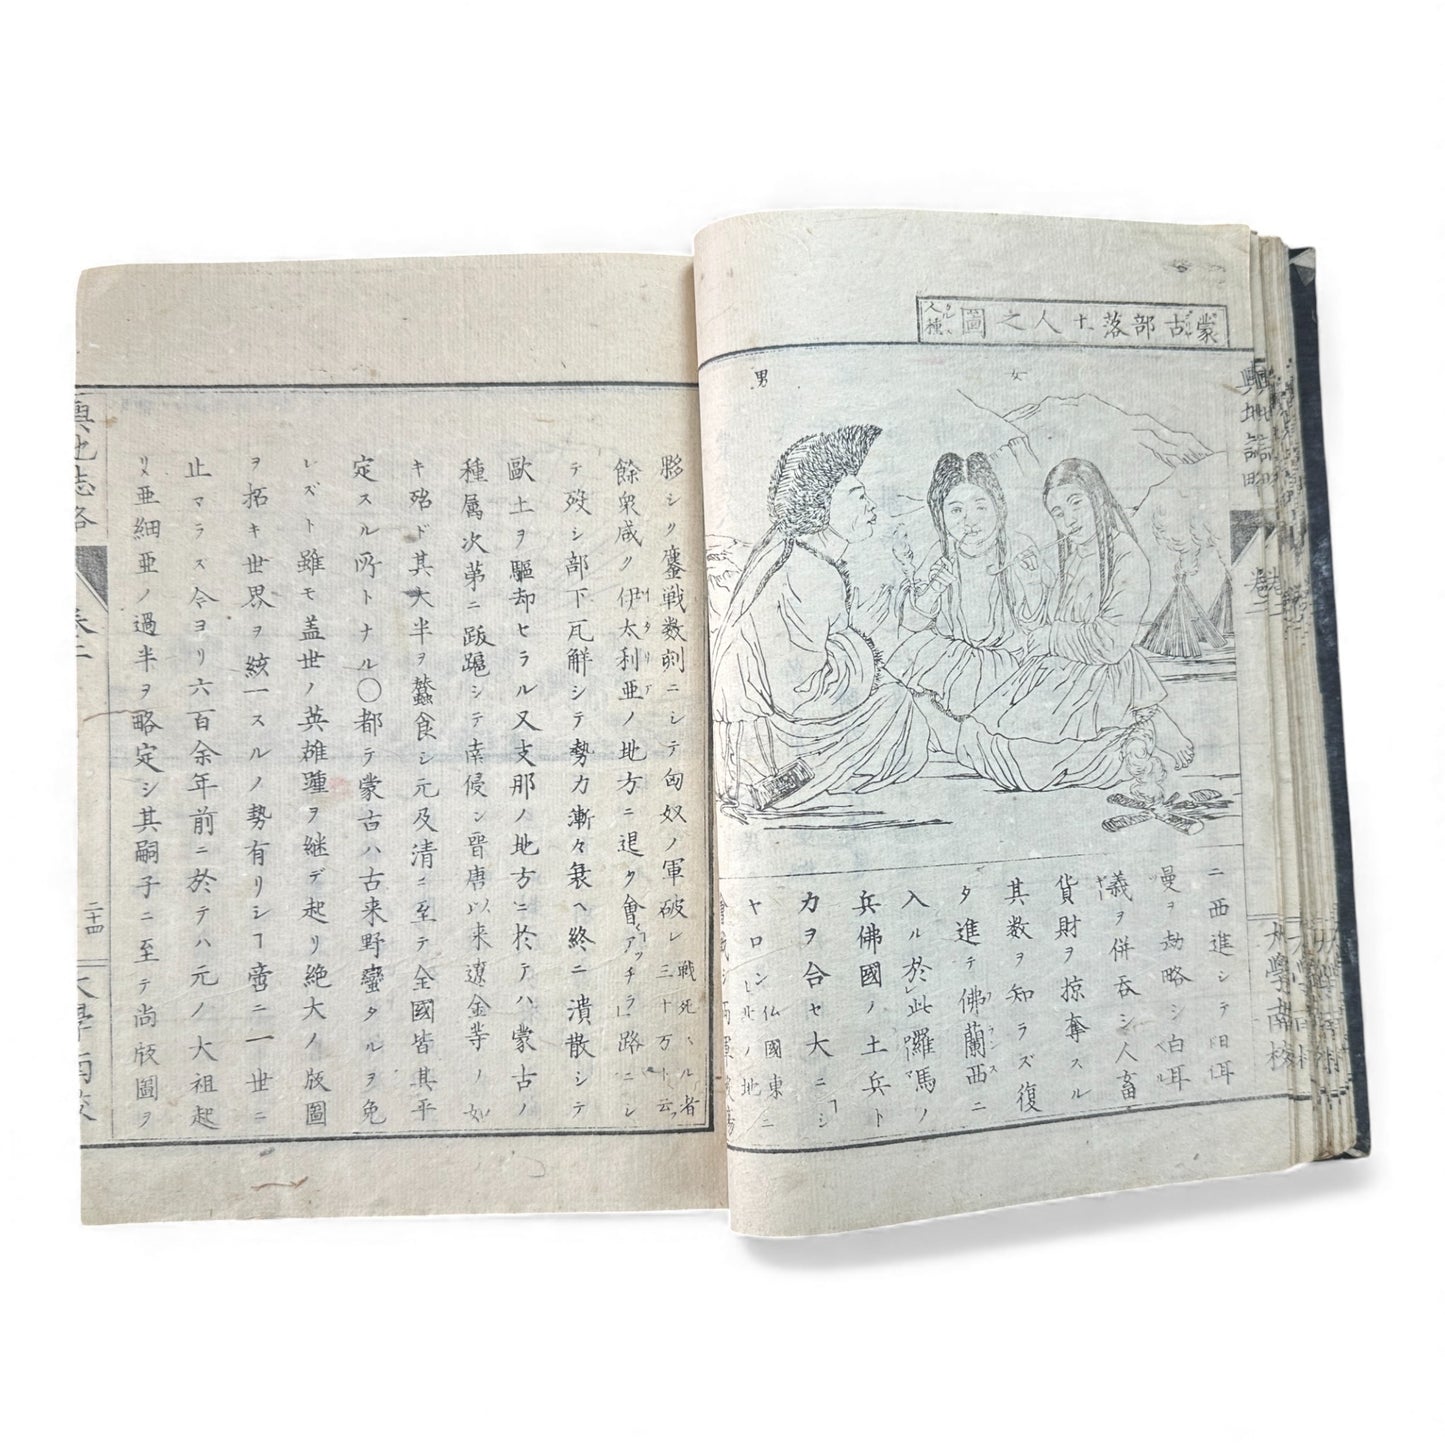 蒙古部落土人之圖
人種
女
男
ニ西進シテ日耳
曼ヲ劫略シ白耳
義ヲ併呑シ人畜
貨財ヲ掠奪スル
其数ヲ知ラズ復
タ進テ佛蘭西ニ
入ル於此羅馬ノ
兵佛國ノ土兵ト
力ヲ合セ大ニシ
ヤロン仏國東ニ
輿地誌略
巻二
大學南校
夥シク鏖戦数刻ニシテ匈奴ノ軍破レ戦死スル者三十万ト云
餘衆咸ク伊太利亜ノ地方ニ退ク會アッチラ路ニシ
テ歿シ部下瓦解シテ勢力漸々衰ヘ終ニ潰散シテ
歐土ヲ驅却セラル又支那ノ地方ニ於テハ蒙古ノ
種属次第ニ跋扈シテ南侵シ晋唐以来遼金等ノ如
キ殆ド其大半ヲ蠶食シ元及清ニ至テ全國皆其平
定スル所トナル〇都テ蒙古ハ古来野蠻タルヲ免
レズト雖モ蓋世ノ英雄踵ヲ継デ起リ絶大ノ版圖
ヲ拓キ世界ヲ統一スルノ勢有リシヿ啻ニ一世ニ
止マラズ今ヨリ六百余年前ニ於テハ元ノ大祖起
リ亜細亜ノ過半ヲ略定シ其嗣子ニ至テ尚版圖ヲ
輿地志略
巻二
二十四
大學南校